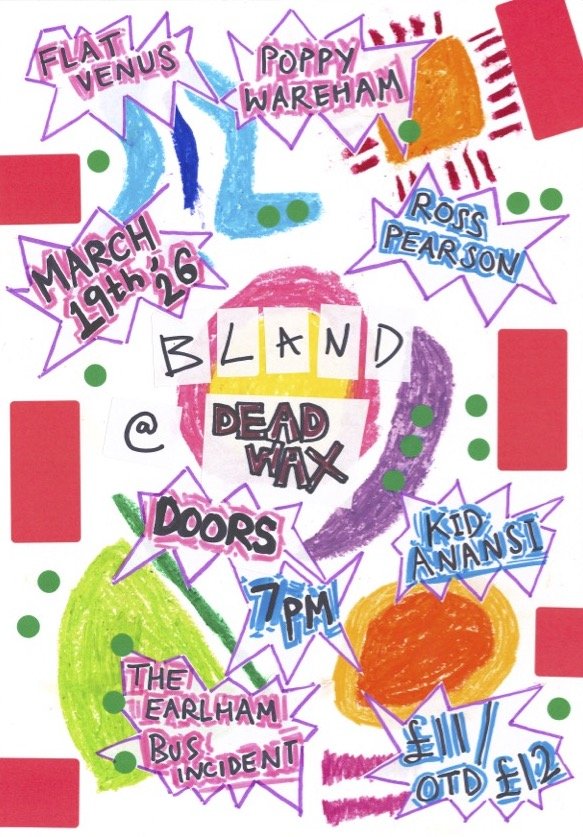 FLAT
VENUS
POPPY
WAREHAM
MARCH
19th, '26
ROSS
PEARSON
BLAND
@
DEAD
WAX
DOORS
7PM
KID
ANANSI
THE
EARLHAM
BUS
INCIDENT
£11/
OTD £12